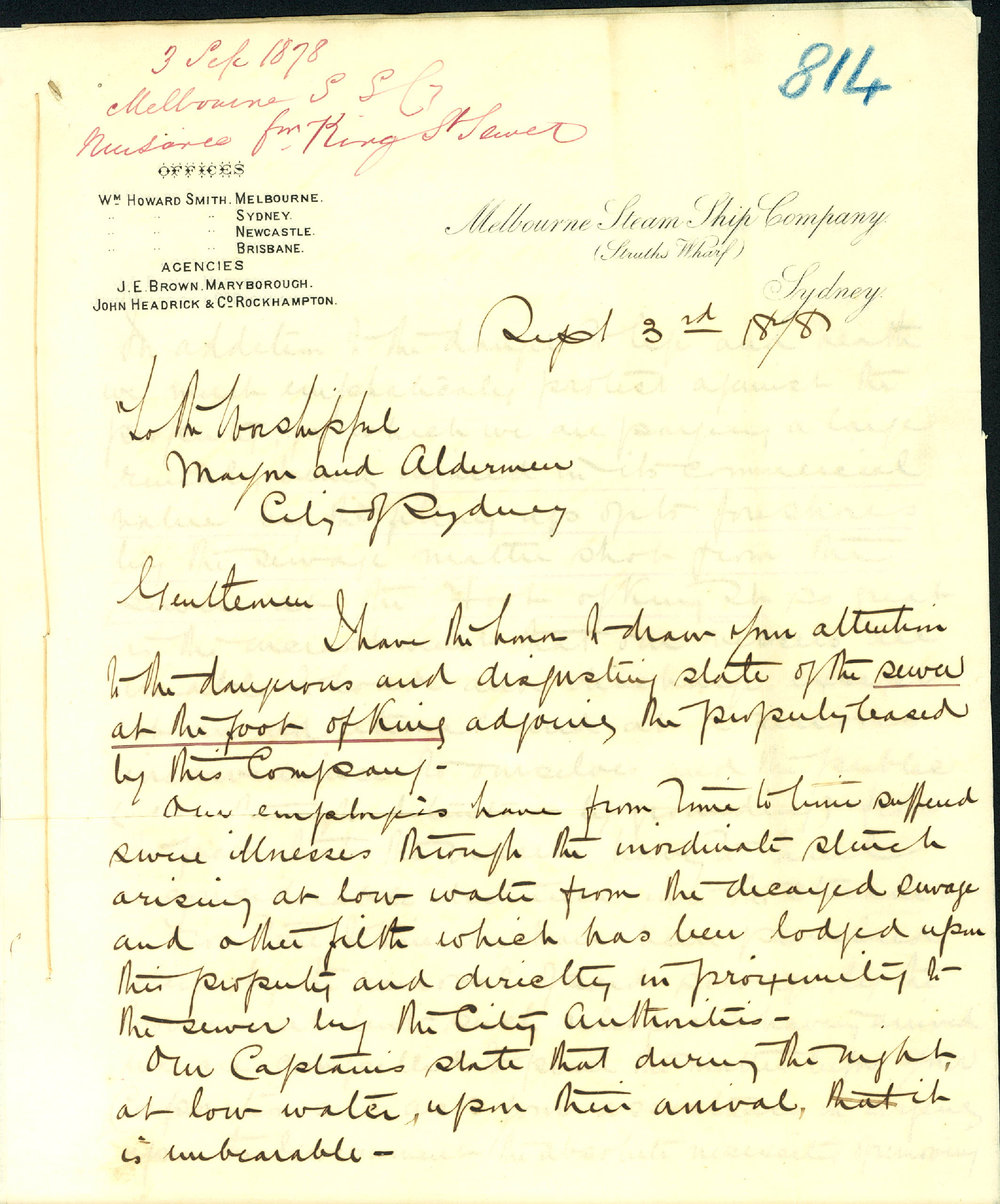 3 Sep 1878
Melbourne S S Co
Nuisance fm King St Sewer
814
OFFICES
Wm Howard Smith. Melbourne.
" " " Sydney.
" " " Newcastle.
" " " Brisbane.
AGENCIES
J. E. Brown. Maryborough.
John Headrick & Co Rockhampton.
Melbourne Steam Ship Company
(Struths Wharf)
Sydney.
Sept 3rd 1878
To the Worshipful
Mayor and Aldermen
City of Sydney
Gentlemen
I have the honor to draw your attention
to the dangerous and disgusting state of the sewer
at the foot of King adjoining the property leased
by this Company -
Our employees have from time to time suffered
severe illnesses through the inordinate stench
arising at low water from the decayed sewage
and other filth which has been lodged upon
this property and directly in proximity to
the sewer by the City Authorities -
Our Captains state that during the night,
at low water, upon their arrival, that it
is unbearable -